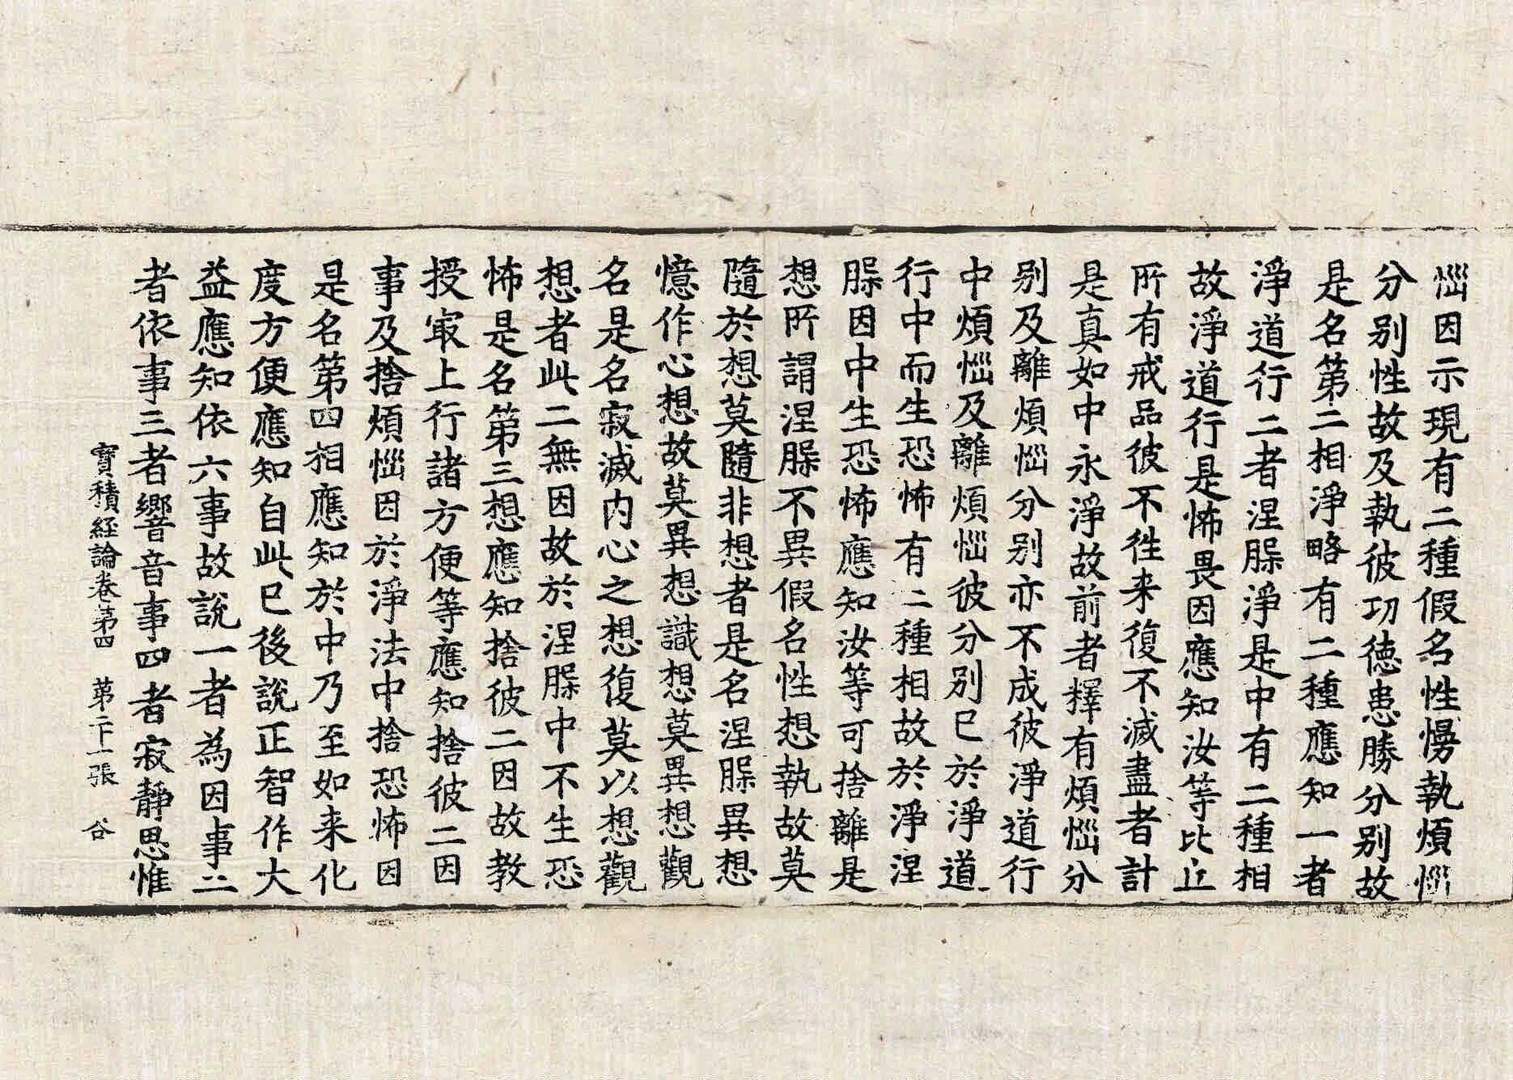 惱因示現有二種假名性慢執煩惱
分別性故及執彼功徳患勝分别故
是名第二相淨略有二種應知一者
淨道行二者涅䏶淨是中有二種相
故淨道行是怖畏因應知汝等比丘
所有戒品彼不徃来復不滅盡者計
是真如中永淨故前者釋有煩惱分
别及離煩惱分别亦不成彼淨道行
中煩惱及離煩惱彼分別已於淨道
行中而生恐怖有二種相故於淨涅
䏶因中生恐怖應知汝等可捨離是
想所謂涅䏶不異假名性想執故莫
隨於想莫隨非想者是名涅䏶異想
憶作心想故莫異想識想莫異想觀
名是名寂滅内心之想復莫以想觀
想者此二無因故於涅䏶中不生恐
怖是名第三想應知捨彼二因故教
授冣上行諸方便等應知捨彼二因
事及捨煩惱因於淨法中捨恐怖因
是名第四相應知於中乃至如来化
度方便應知自此已後說正智作大
益應知依六事故說一者為因事二
者依事三者響音事四者寂靜思惟
寶積經論卷第四　第二十一張　谷